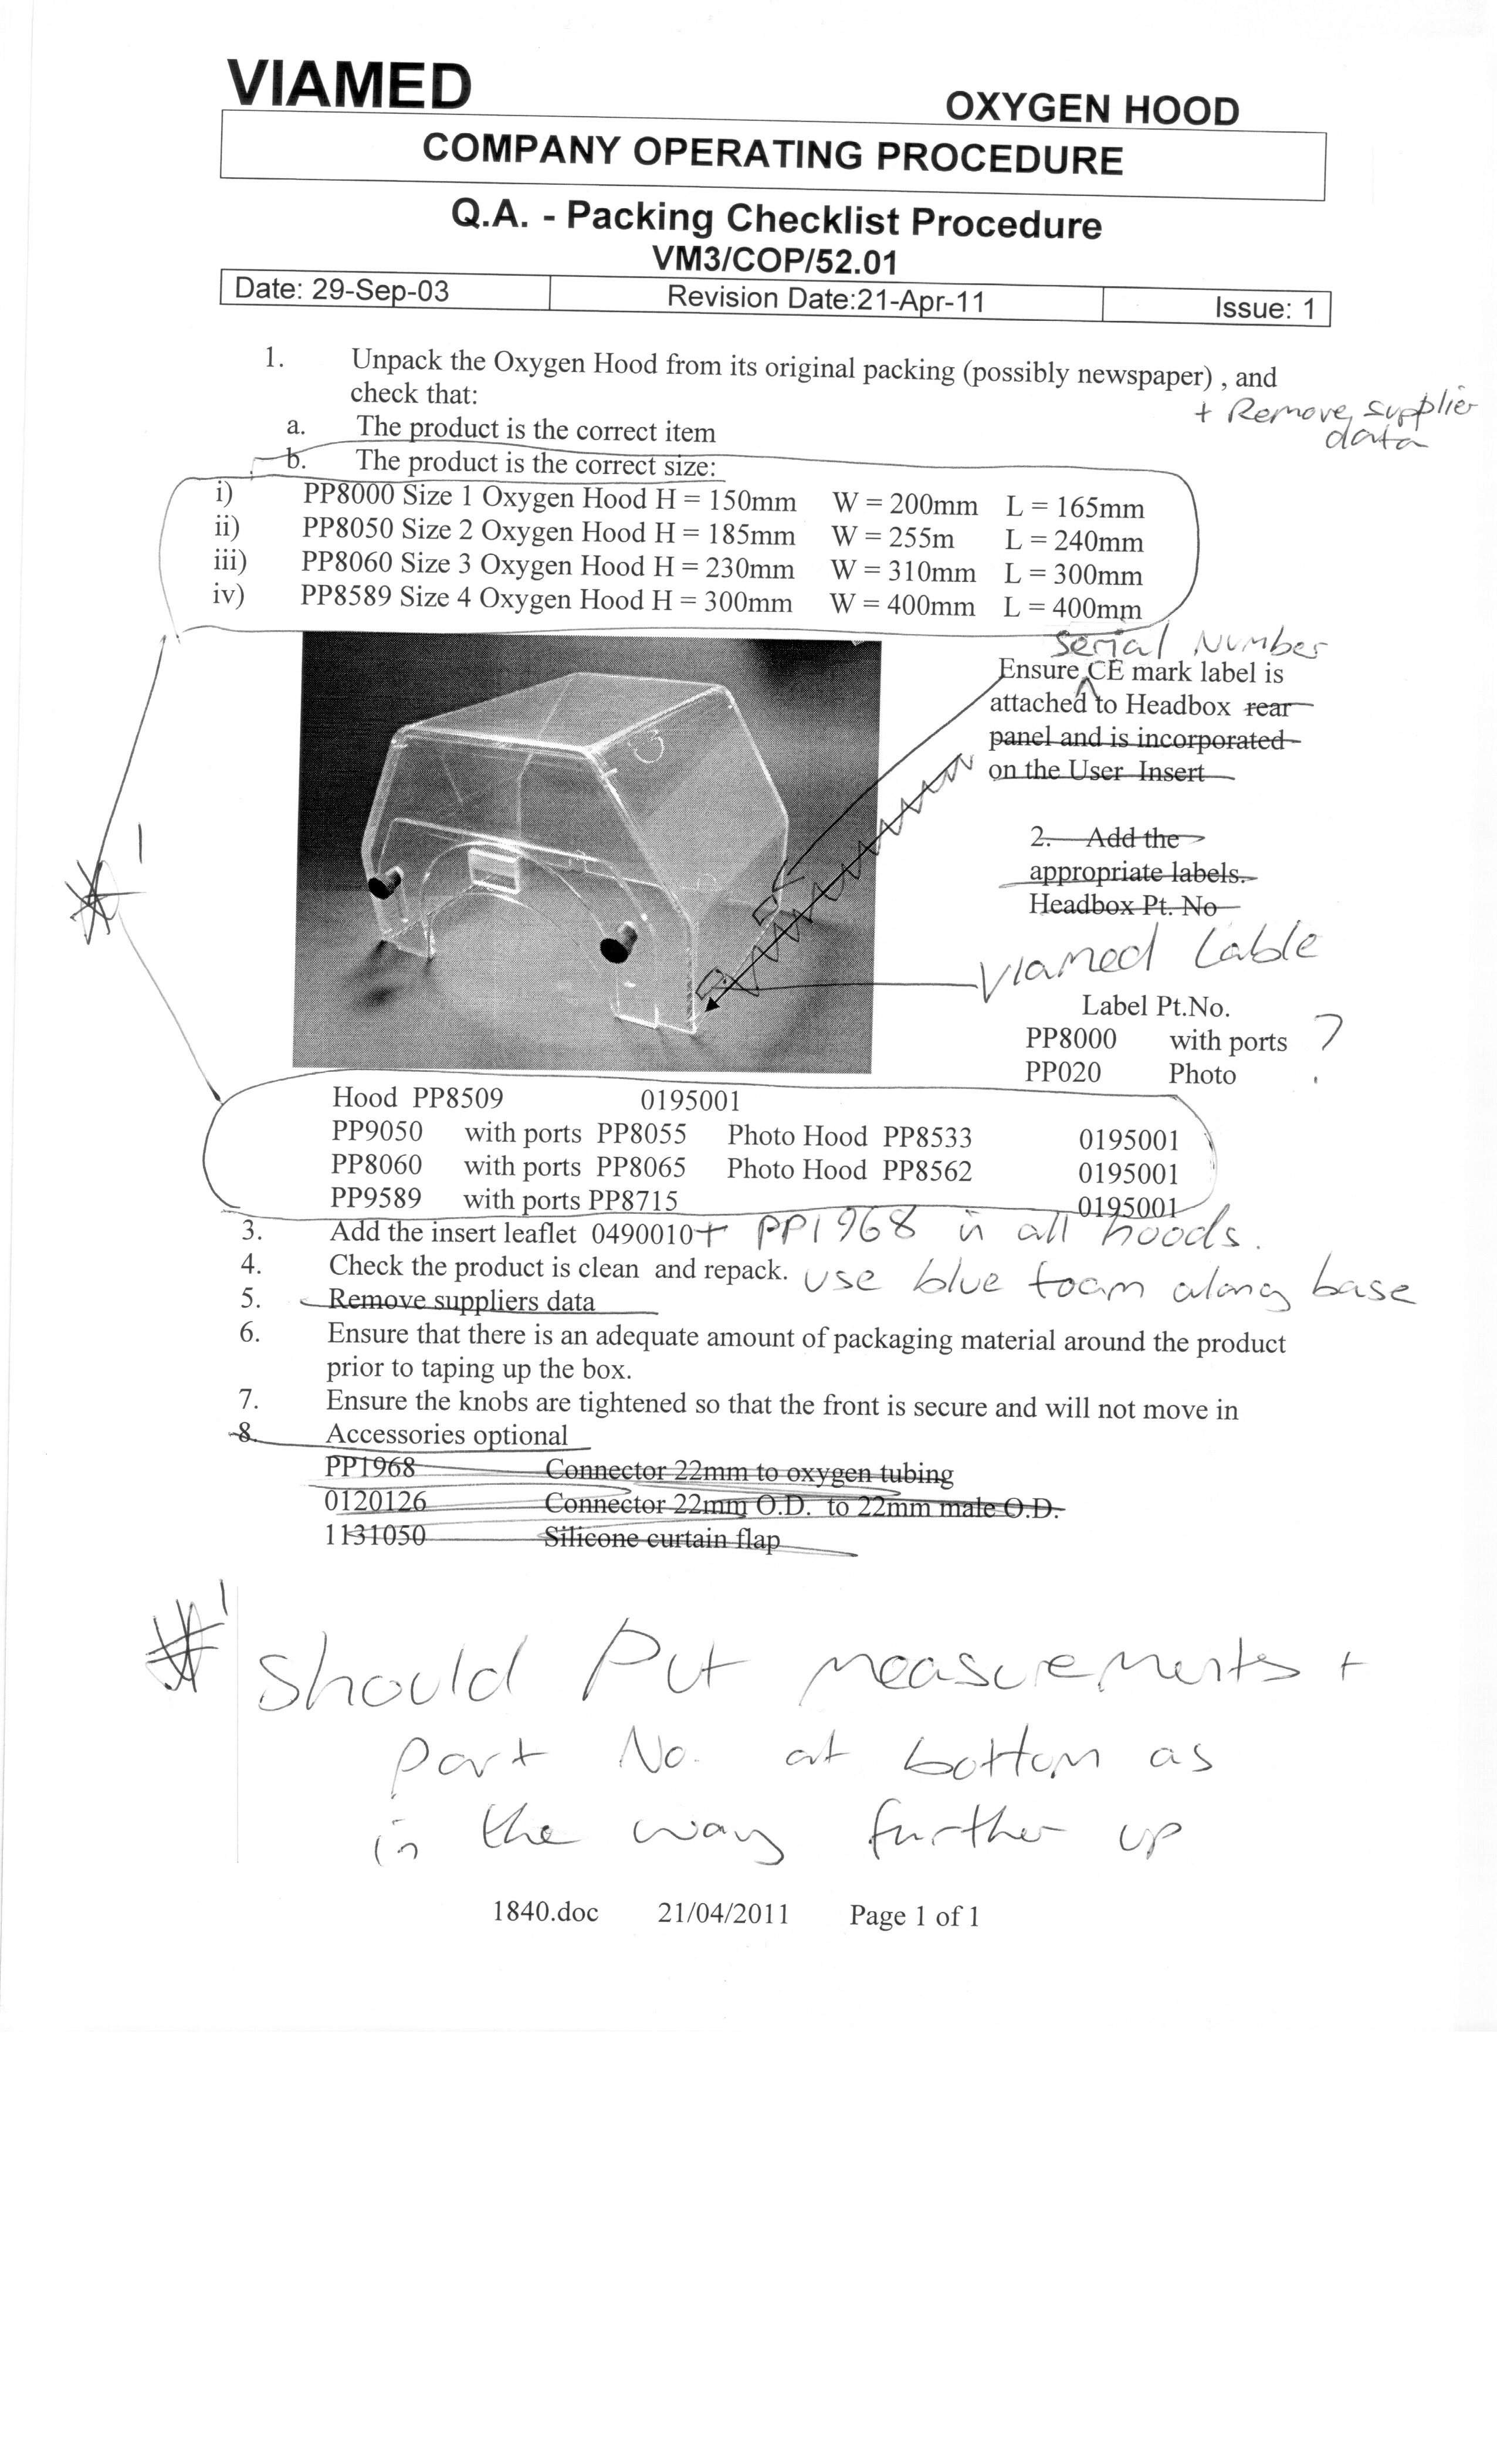 VIAMED
OXYGEN HOOD
COMPANY OPERATING PROCEDURE
Q.A. - Packing Checklist Procedure
VM3/COP/52.01
Date: 29-Sep-03 Revision Date:21-Apr-11 Issue: 1
1. Unpack the Oxygen Hood from its original packing (possibly newspaper) , and
check that:
+ Remove supplier
data
a. The product is the correct item
b. The product is the correct size:
i) PP8000 Size 1 Oxygen Hood H = 150mm W = 200mm L = 165mm
ii) PP8050 Size 2 Oxygen Hood H = 185mm W = 255m L = 240mm
iii) PP8060 Size 3 Oxygen Hood H = 230mm W = 310mm L = 300mm
iv) PP8589 Size 4 Oxygen Hood H = 300mm W = 400mm L = 400mm
Serial Number
Ensure CE mark label is
attached to Headbox rear
panel and is incorporated
on the User Insert
1
2. Add the
appropriate labels.
Headbox Pt. No
Viamed Lable
Label Pt.No.
PP8000 with ports ?
PP020 Photo
Hood PP8509 0195001
PP9050 with ports PP8055 Photo Hood PP8533 0195001
PP8060 with ports PP8065 Photo Hood PP8562 0195001
PP9589 with ports PP8715 0195001
3. Add the insert leaflet 0490010 + PP1968 in all hoods.
4. Check the product is clean and repack. use blue foam along base
5. Remove suppliers data
6. Ensure that there is an adequate amount of packaging material around the product
prior to taping up the box.
7. Ensure the knobs are tightened so that the front is secure and will not move in
8. Accessories optional
PP1968 Connector 22mm to oxygen tubing
0120126 Connector 22mm O.D. to 22mm male O.D.
1131050 Silicone curtain flap
1
Should Put measurements +
part No. at bottom as
in the way further up
1840.doc 21/04/2011 Page 1 of 1